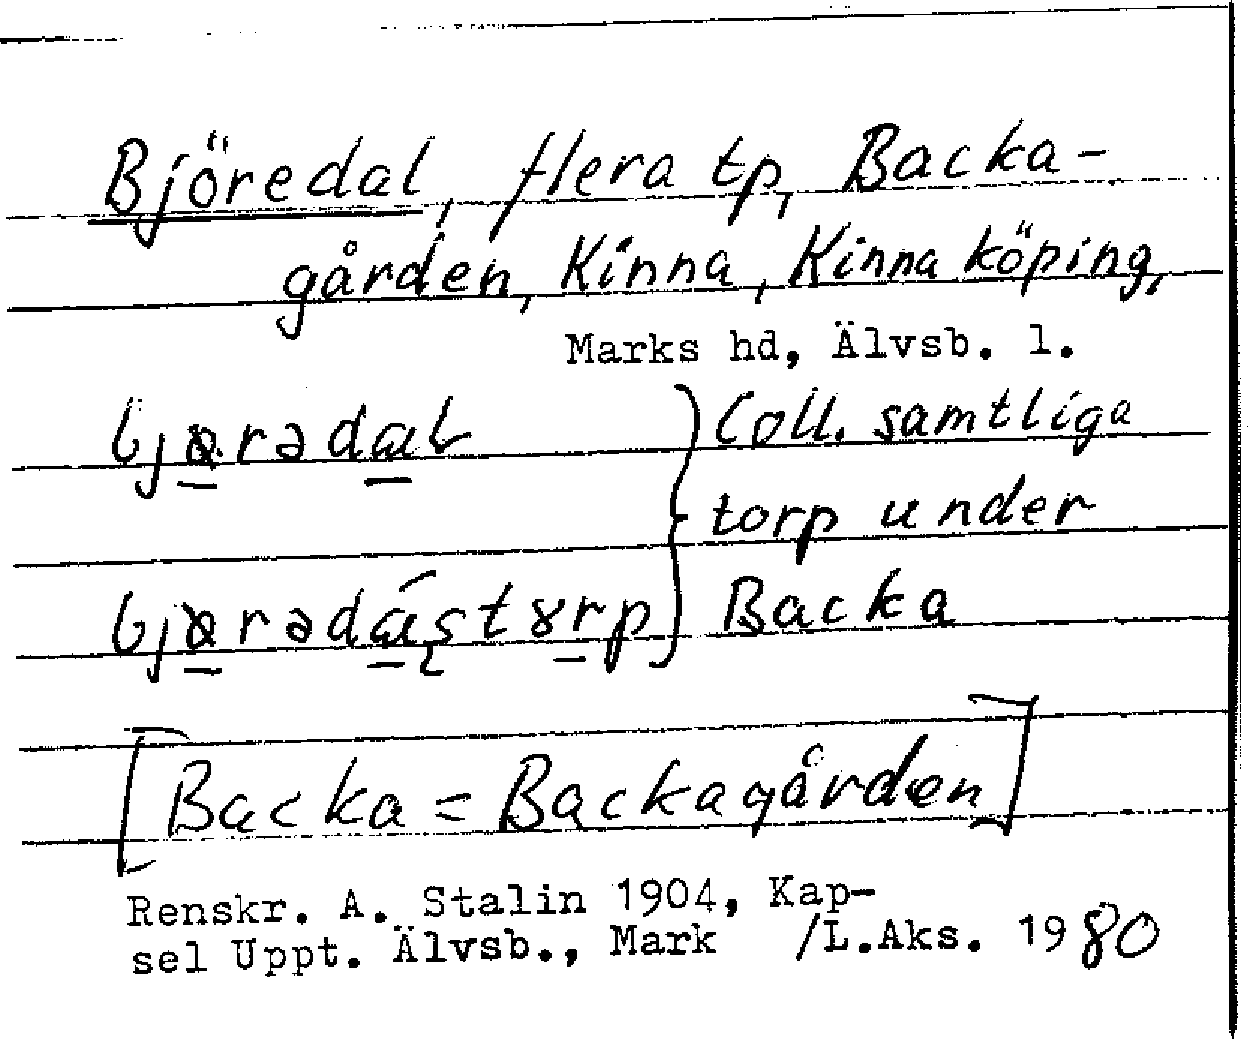 Björedal, flera tp, Backa-
gården, Kinna, Kinna köping,
Marks hd, Älvsb. l.
Coll. samtliga
torp under
Backa
[Backa = Backagården]
Renskr. A. Stalin 1904, Kap-
sel Uppt. Älvsb., Mark /L.Aks. 1980